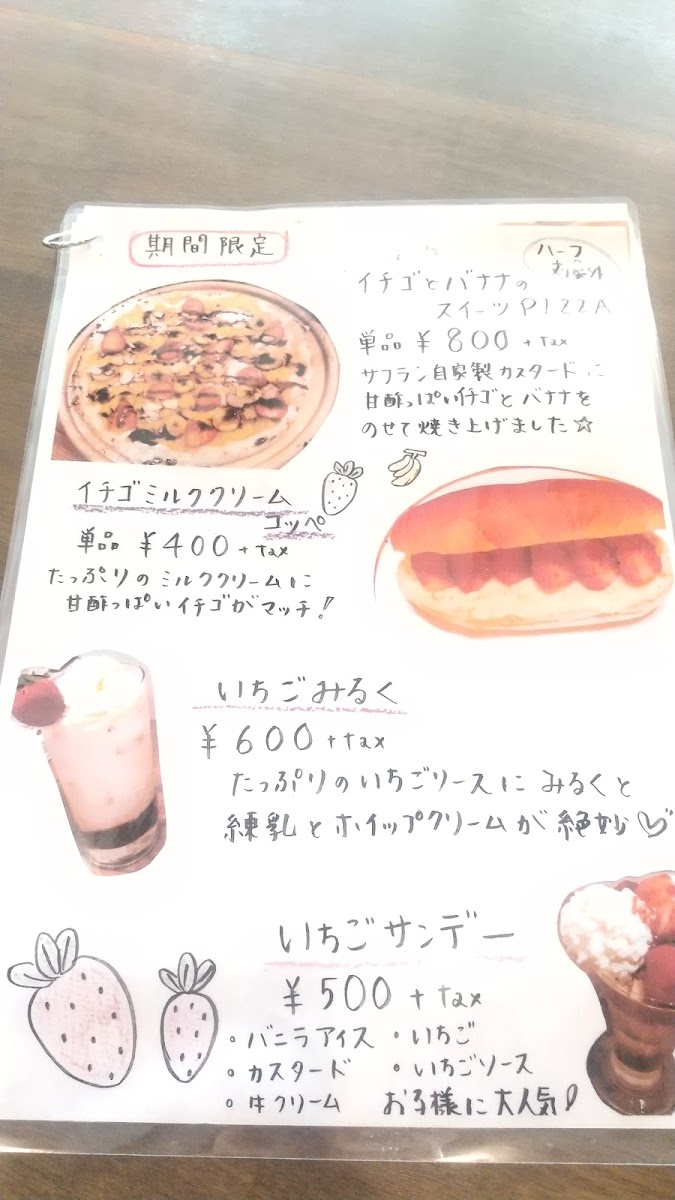 期間限定
ハーフ
イチゴとバナナの
スイーツPIZZA
単品 ¥800+tax
サフラン自家製カスタードに
甘酸っぱいイチゴとバナナを
のせて焼き上げました☆
イチゴミルククリーム
コッペ
単品 ¥400+tax
たっぷりのミルククリームに
甘酸っぱいイチゴがマッチ!
いちごみるく
¥600+tax
たっぷりのいちごソースにみるくと
練乳とホイップクリームが絶妙♡
いちごサンデー
¥500+tax
・バニラアイス ・いちご
・カスタード ・いちごソース
・生クリーム お子様に大人気!